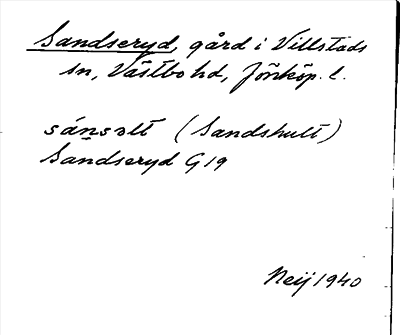 Sandseryd, gård i Villstads
sn, Västbo hd, Jönköp. l.
sánsəlt (Sandshult)
Sandseryd G19
Neij 1940